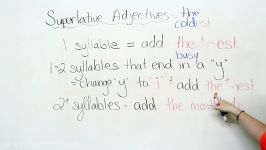 Superlative Adjectives - the
coldest
1 syllable = add the + -est
busy
1-2 syllables that end in a "y"
= change "y" to "i" + add the + -est
2+ syllables = add the most